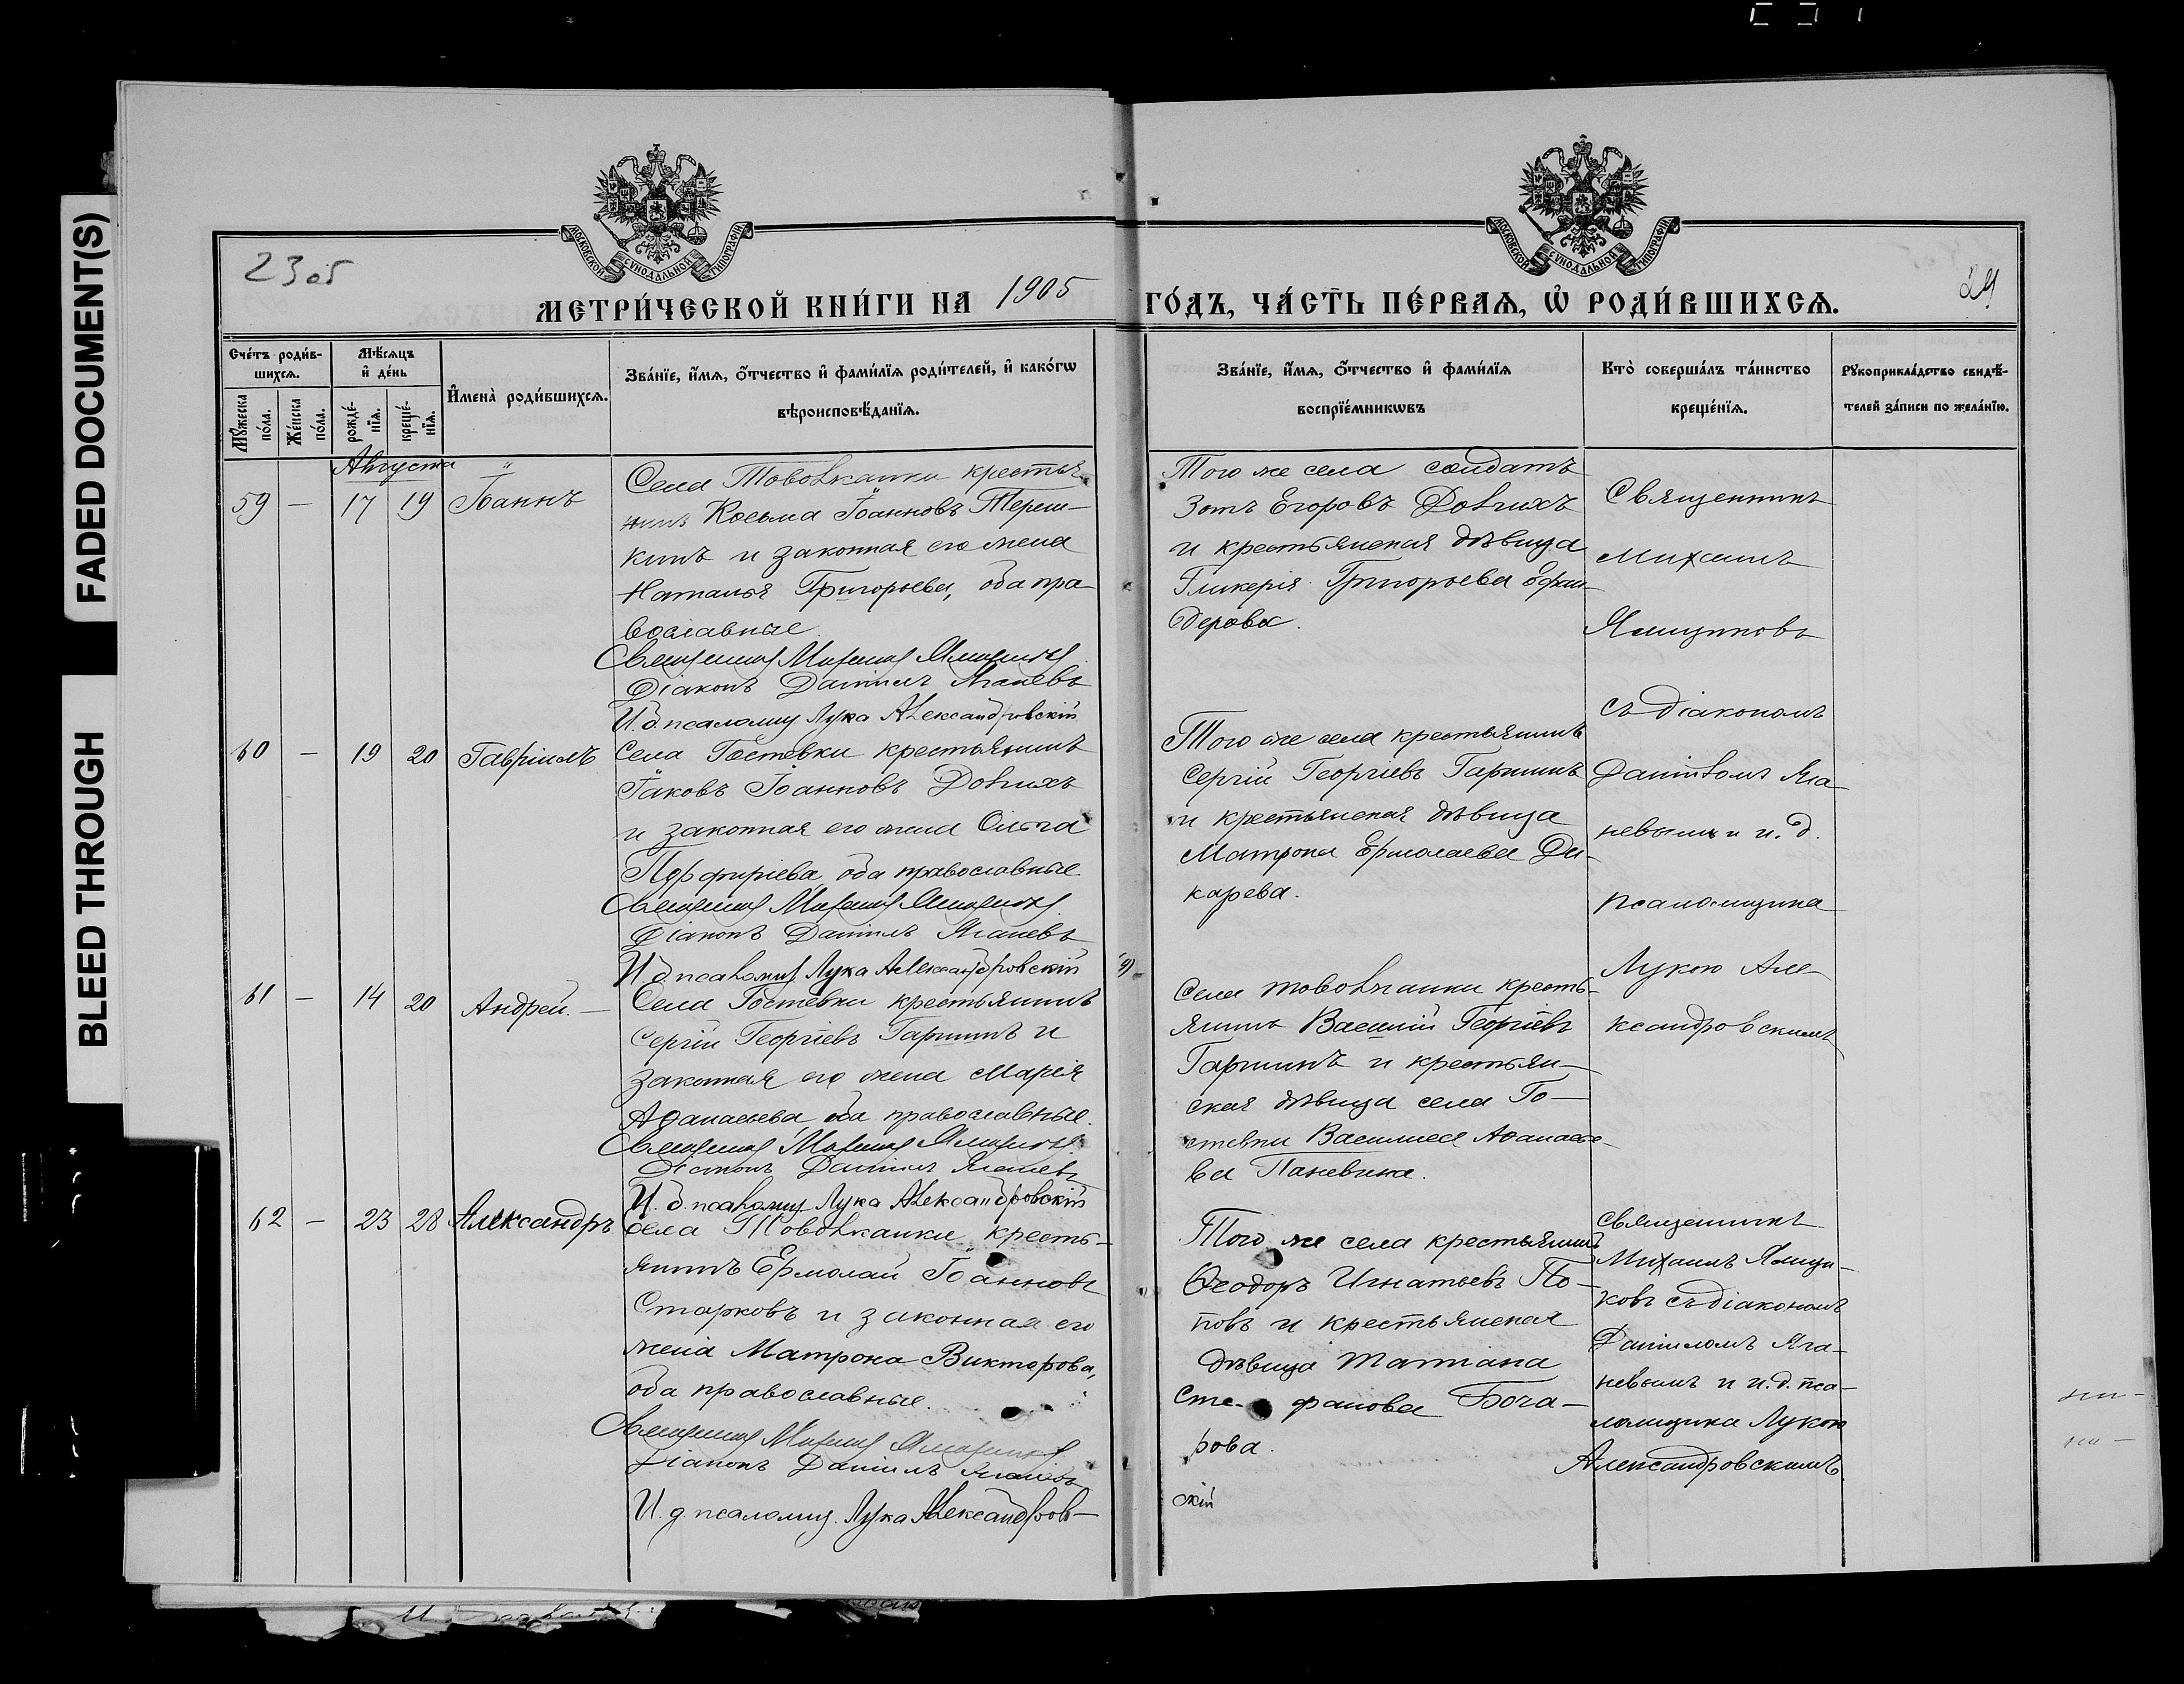 FADED DOCUMENT(S)
BLEED THROUGH
23об
24
МОСКОВСКОЙ СѴНОДАЛЬНОЙ ТИПОГРАФІИ
МОСКОВСКОЙ СѴНОДАЛЬНОЙ ТИПОГРАФІИ
МЕТРИ́ЧЕСКОЙ КНИ́ГИ НА 1905 ГО́ДЪ, ЧА́СТЬ ПЕ́РВАѦ, Ѡ҆ РОДИ́ВШИХСѦ.
Сче́тъ роди́в-
шихсѧ.
Мꙋ́жеска по́ла.
Же́нска по́ла.
Мѣ́сѧцъ
и҆ де́нь
рожде́-
нїѧ.
креще́-
нїѧ.
И҆мена̀ роди́вшихсѧ.
Зва́нїе, и҆́мѧ, ѻ҆́тчество и҆ фами́лїѧ роди́телей, и҆ како́гѡ
вѣроисповѣ́данїѧ.
Зва́нїе, и҆́мѧ, ѻ҆́тчество и҆ фами́лїѧ
воспрїе́мникѡвъ
Кто̀ соверша́лъ та́инство
креще́нїѧ.
Рꙋкоприкла́дство свидѣ́-
телей за́писи по жела́нїю.
Августа
59 — 17 19 Іоаннъ
Села Товолжанки крестья
нинъ Косьма Іоанновъ Тереш-
кинъ и законная его жена
Наталья Григорьева, оба пра-
вославные
Священник Михаил Ямщиков
Діаконъ Даніилъ Яганевъ
И. д. псаломщ Лука Александровскій
Того же села солдатъ
Зотъ Егоровъ Долгихъ
и крестьянская дѣвица
Гликерія Григорьева
дерова.
Священникъ
Михаилъ
Ямщиковъ
съ діакономъ
Даніиломъ Яга-
невымъ и и. д.
псаломщика
Лукою Але-
ксандровскимъ
60 — 19 20 Гавріилъ
Села Гостевки крестьянинъ
Іаковъ Іоанновъ Долгихъ
и законная его жена Ольга
Порфиріева оба православные.
Священник Михаил Ямщиков
Діаконъ Даніилъ Яганевъ
И д псаломщ Лука Александровскій
Того же села крестьянинъ
Сергій Георгіевъ Гаршинъ
и крестьянская дѣвица
Матрона Ермолаева Ди-
карева.
61 — 14 20 Андрей. —
Села Гостевки крестьянинъ
Сергій Георгіевъ Гаршинъ и
законная его жена Марія
Аѳанасьева оба православные.
Священник Михаил Ямщиков
Діаконъ Даніилъ Яганевъ
И. д. псаломщ Лука Александровскій
Села Товолжанки кресть-
янинъ Василій Георгіевъ
Гаршинъ и крестьян-
ская дѣвица села Го-
стевки Василиса Аѳанасье-
ва Паневина.
62 — 23 28 Александръ
Села Товолжанки кресть-
янинъ Ермолай Іоанновъ
Старковъ и законная его
жена Матрона Викторова,
оба православные.
Священник Михаил Ямщиков
Діаконъ Даніилъ Яганевъ
И. д. псаломщ. Лука Александров-
скій
Того же села крестьянинъ
Ѳеодоръ Игнатьевъ По-
повъ и крестьянская
дѣвица Татіана
Сте- фанова Боча-
рова.
Священникъ
Михаилъ Ямщи-
ковъ съ діакономъ
Даніиломъ Яга-
невымъ и и. д. пса-
ломщика Лукою
Александровскимъ